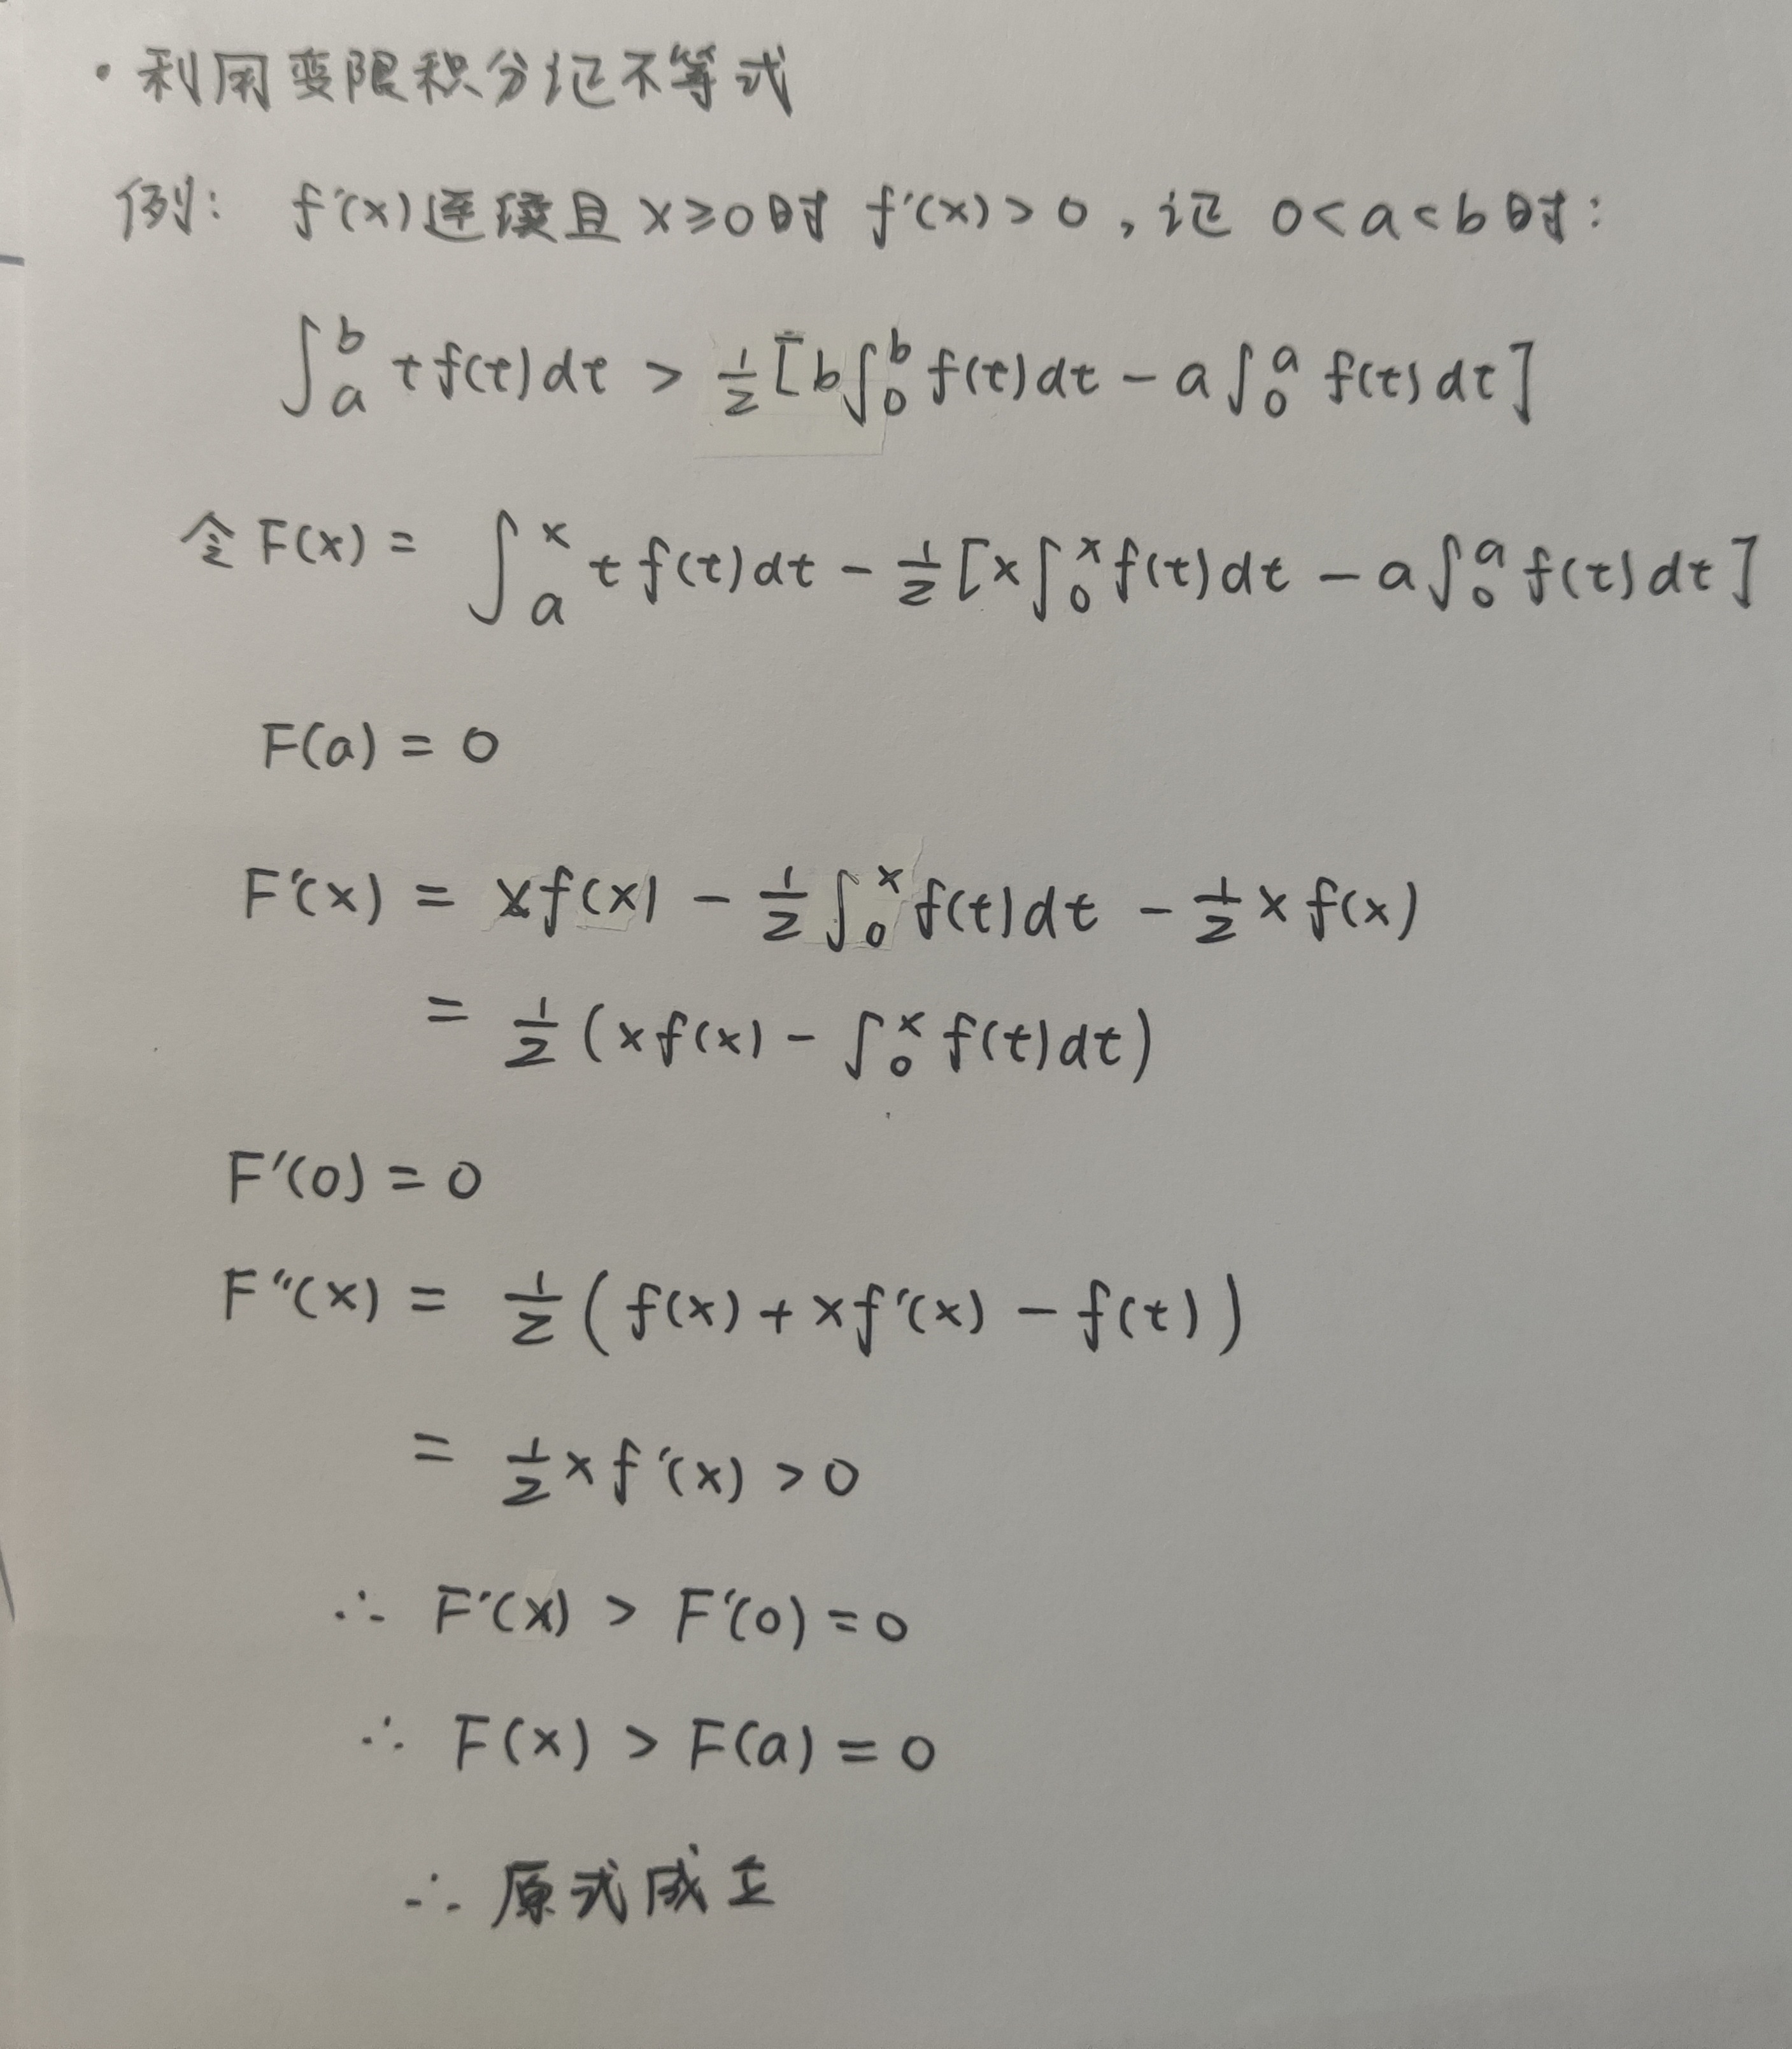 ·利用变限积分证不等式
例: f'(x)连续且 x≥0时 f'(x)>0,证 0<a<b时:
∫_a^b tf(t)dt > 1/2[b∫_0^b f(t)dt - a∫_0^a f(t)dt]
令 F(x) = ∫_a^x tf(t)dt - 1/2[x∫_0^x f(t)dt - a∫_0^a f(t)dt]
F(a) = 0
F'(x) = xf(x) - 1/2∫_0^x f(t)dt - 1/2xf(x)
= 1/2(xf(x) - ∫_0^x f(t)dt)
F'(0) = 0
F''(x) = 1/2(f(x) + xf'(x) - f(t))
= 1/2xf'(x) > 0
∴ F'(x) > F'(0) = 0
∴ F(x) > F(a) = 0
∴ 原式成立